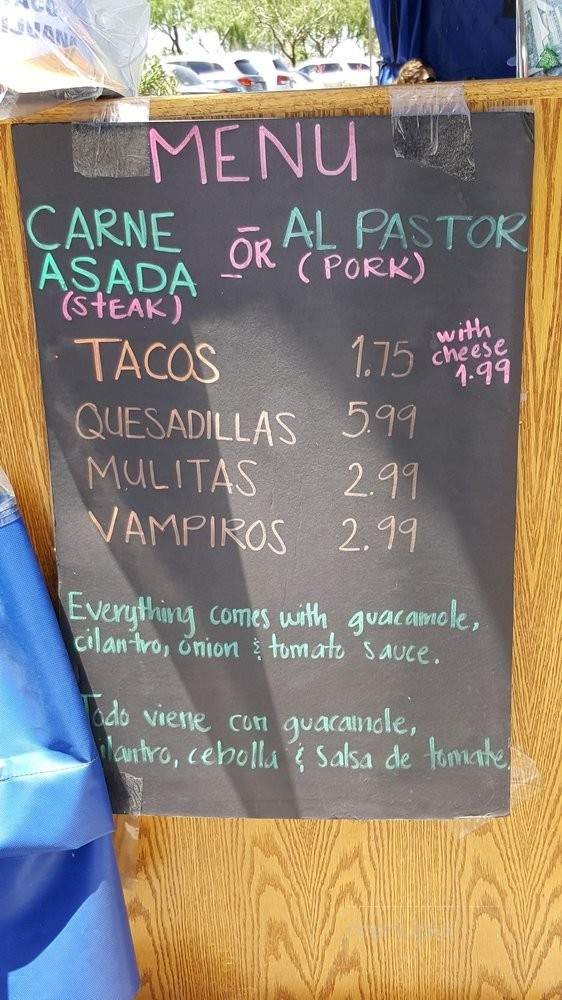 TACO
MENU
CARNE ASADA (STEAK) OR AL PASTOR (PORK)
TACOS 1.75 with cheese 1.99
QUESADILLAS 5.99
MULITAS 2.99
VAMPIROS 2.99
Everything comes with guacamole,
cilantro, onion & tomato sauce.
Todo viene con guacamole,
cilantro, cebolla & salsa de tomate.